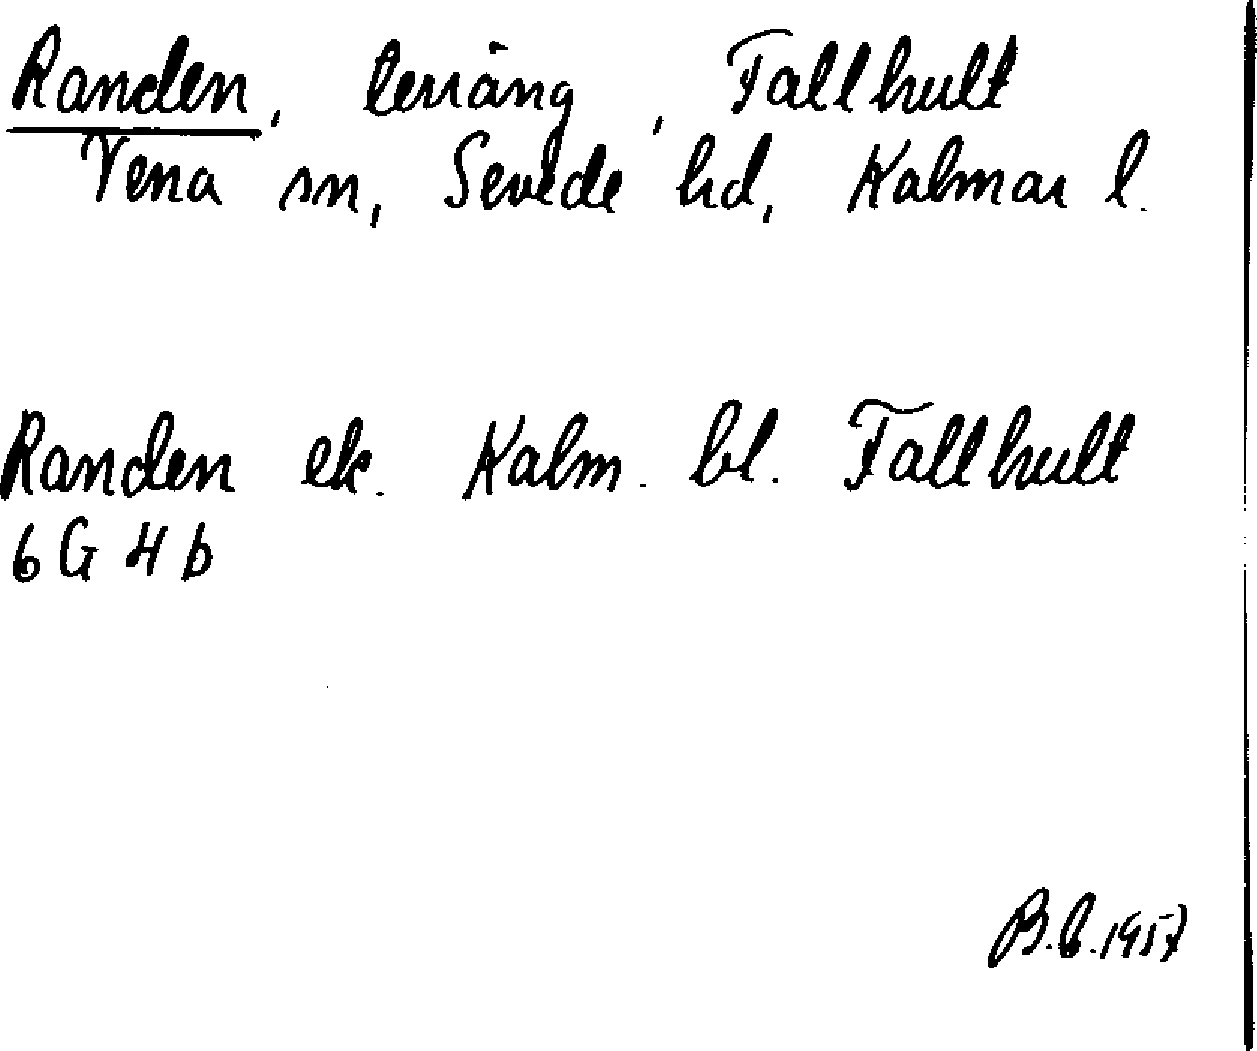 Randen, terräng, Fallhult
Vena sn, Sevede hd, Kalmar l.
Randen ek. Kalm. bl. Fallhult
6 G 4 b
B.G. 1957